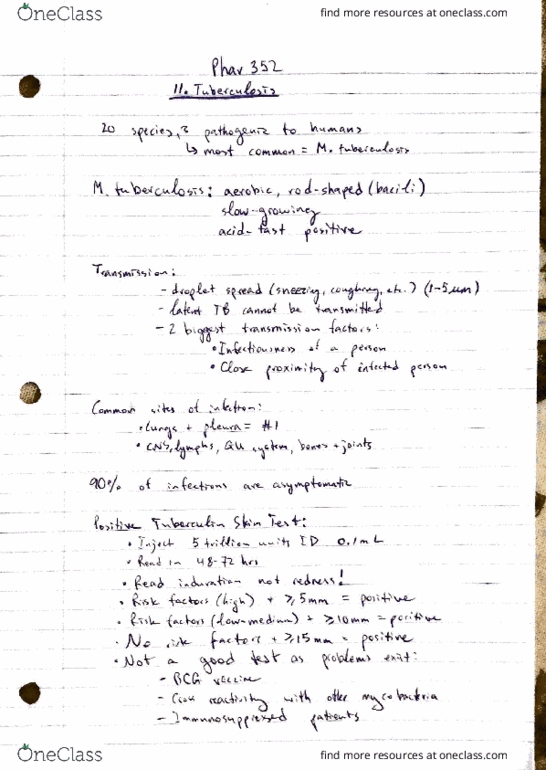 OneClass
find more resources at oneclass.com
Phar 352
11. Tuberculosis
20 species, 3 pathogenic to humans
↳ most common = M. tuberculosis
M. tuberculosis: aerobic, rod-shaped (bacili)
slow-growing
acid-fast positive
Transmission:
- droplet spread (sneezing, coughing, etc.) (1-5 µm)
- latent TB cannot be transmitted
- 2 biggest transmission factors:
• Infectiousness of a person
• Close proximity of infected person
Common sites of infection:
• lungs + pleura = #1
• CNS, lymphs, GU system, bones + joints
90% of infections are asymptomatic
Positive Tuberculin Skin Test:
• Inject 5 trillion units ID 0.1mL
• Read in 48-72 hrs
• Read induration not redness!
• Risk factors (high) + ≥5mm = positive
• Risk factors (low-medium) + ≥10mm = positive
• No risk factors + ≥15mm = positive
• Not a good test as problems exist:
- BCG vaccine
- Cross reactivity with other mycobacteria
- Immunosuppressed patients
OneClass
find more resources at oneclass.com